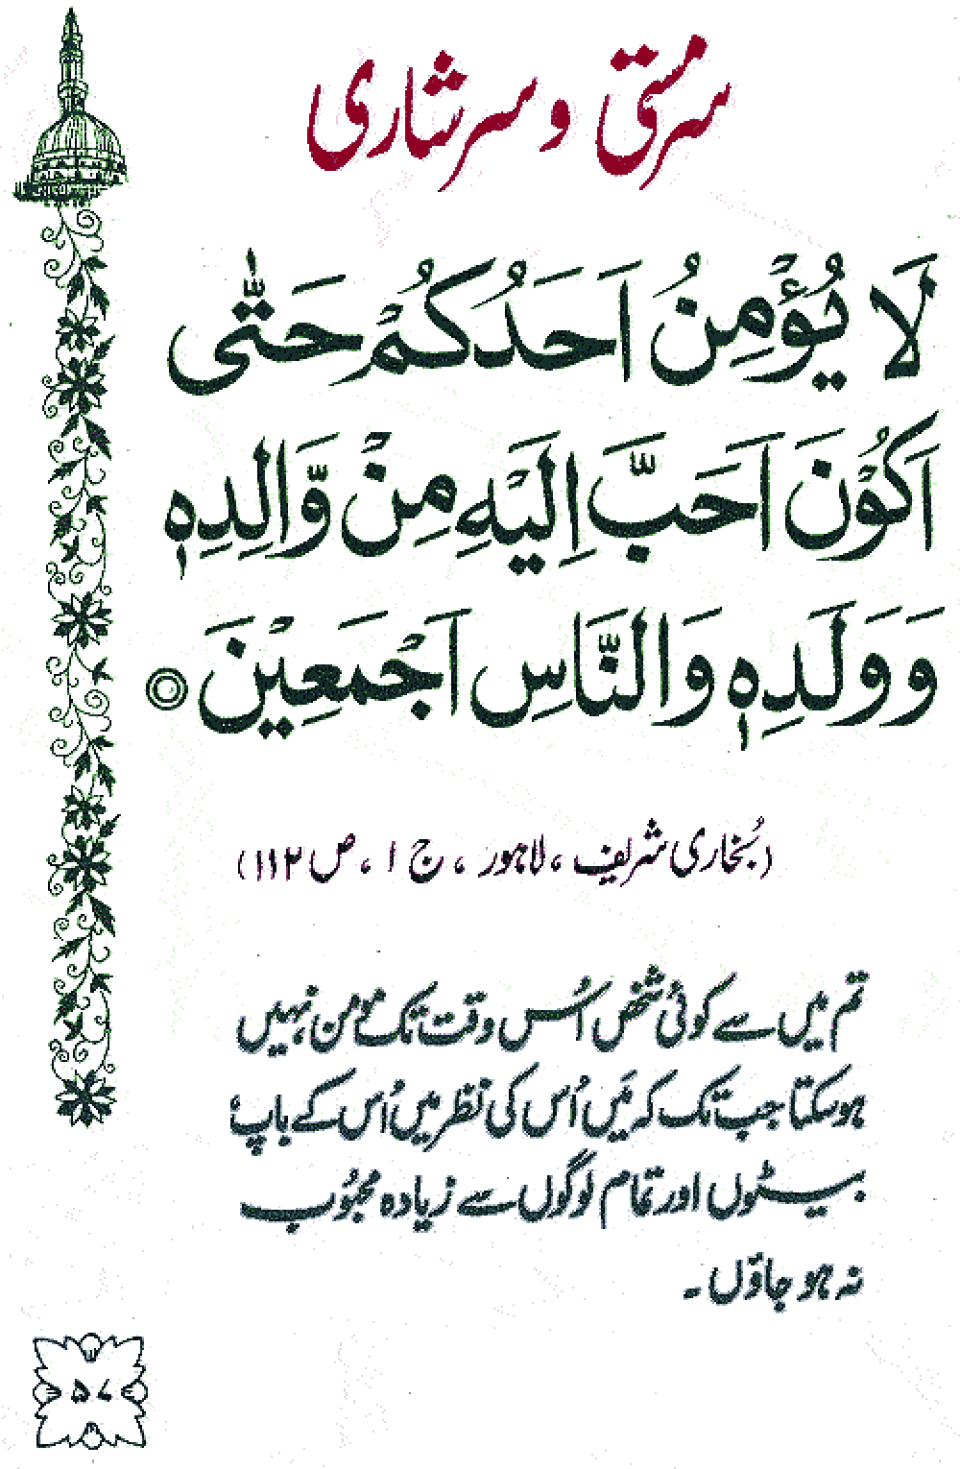 سرمستی و سرشاری
لَا يُؤْمِنُ اَحَدُكُمْ حَتّٰى
اَكُوْنَ اَحَبَّ اِلَيْهِ مِنْ وَّالِدِهٖ
وَوَلَدِهٖ وَالنَّاسِ اَجْمَعِيْنَ ◎
(بُخاری شریف ، لاہور ، ج ۱ ، ص ۱۱۲)
تم میں سے کوئی شخص اُس وقت تک مؤمن نہیں
ہوسکتا جب تک کہ مَیں اُس کی نظر میں اُس کے باپ،
بیٹوں اور تمام لوگوں سے زیادہ محبُوب
نہ ہو جاؤں ۔